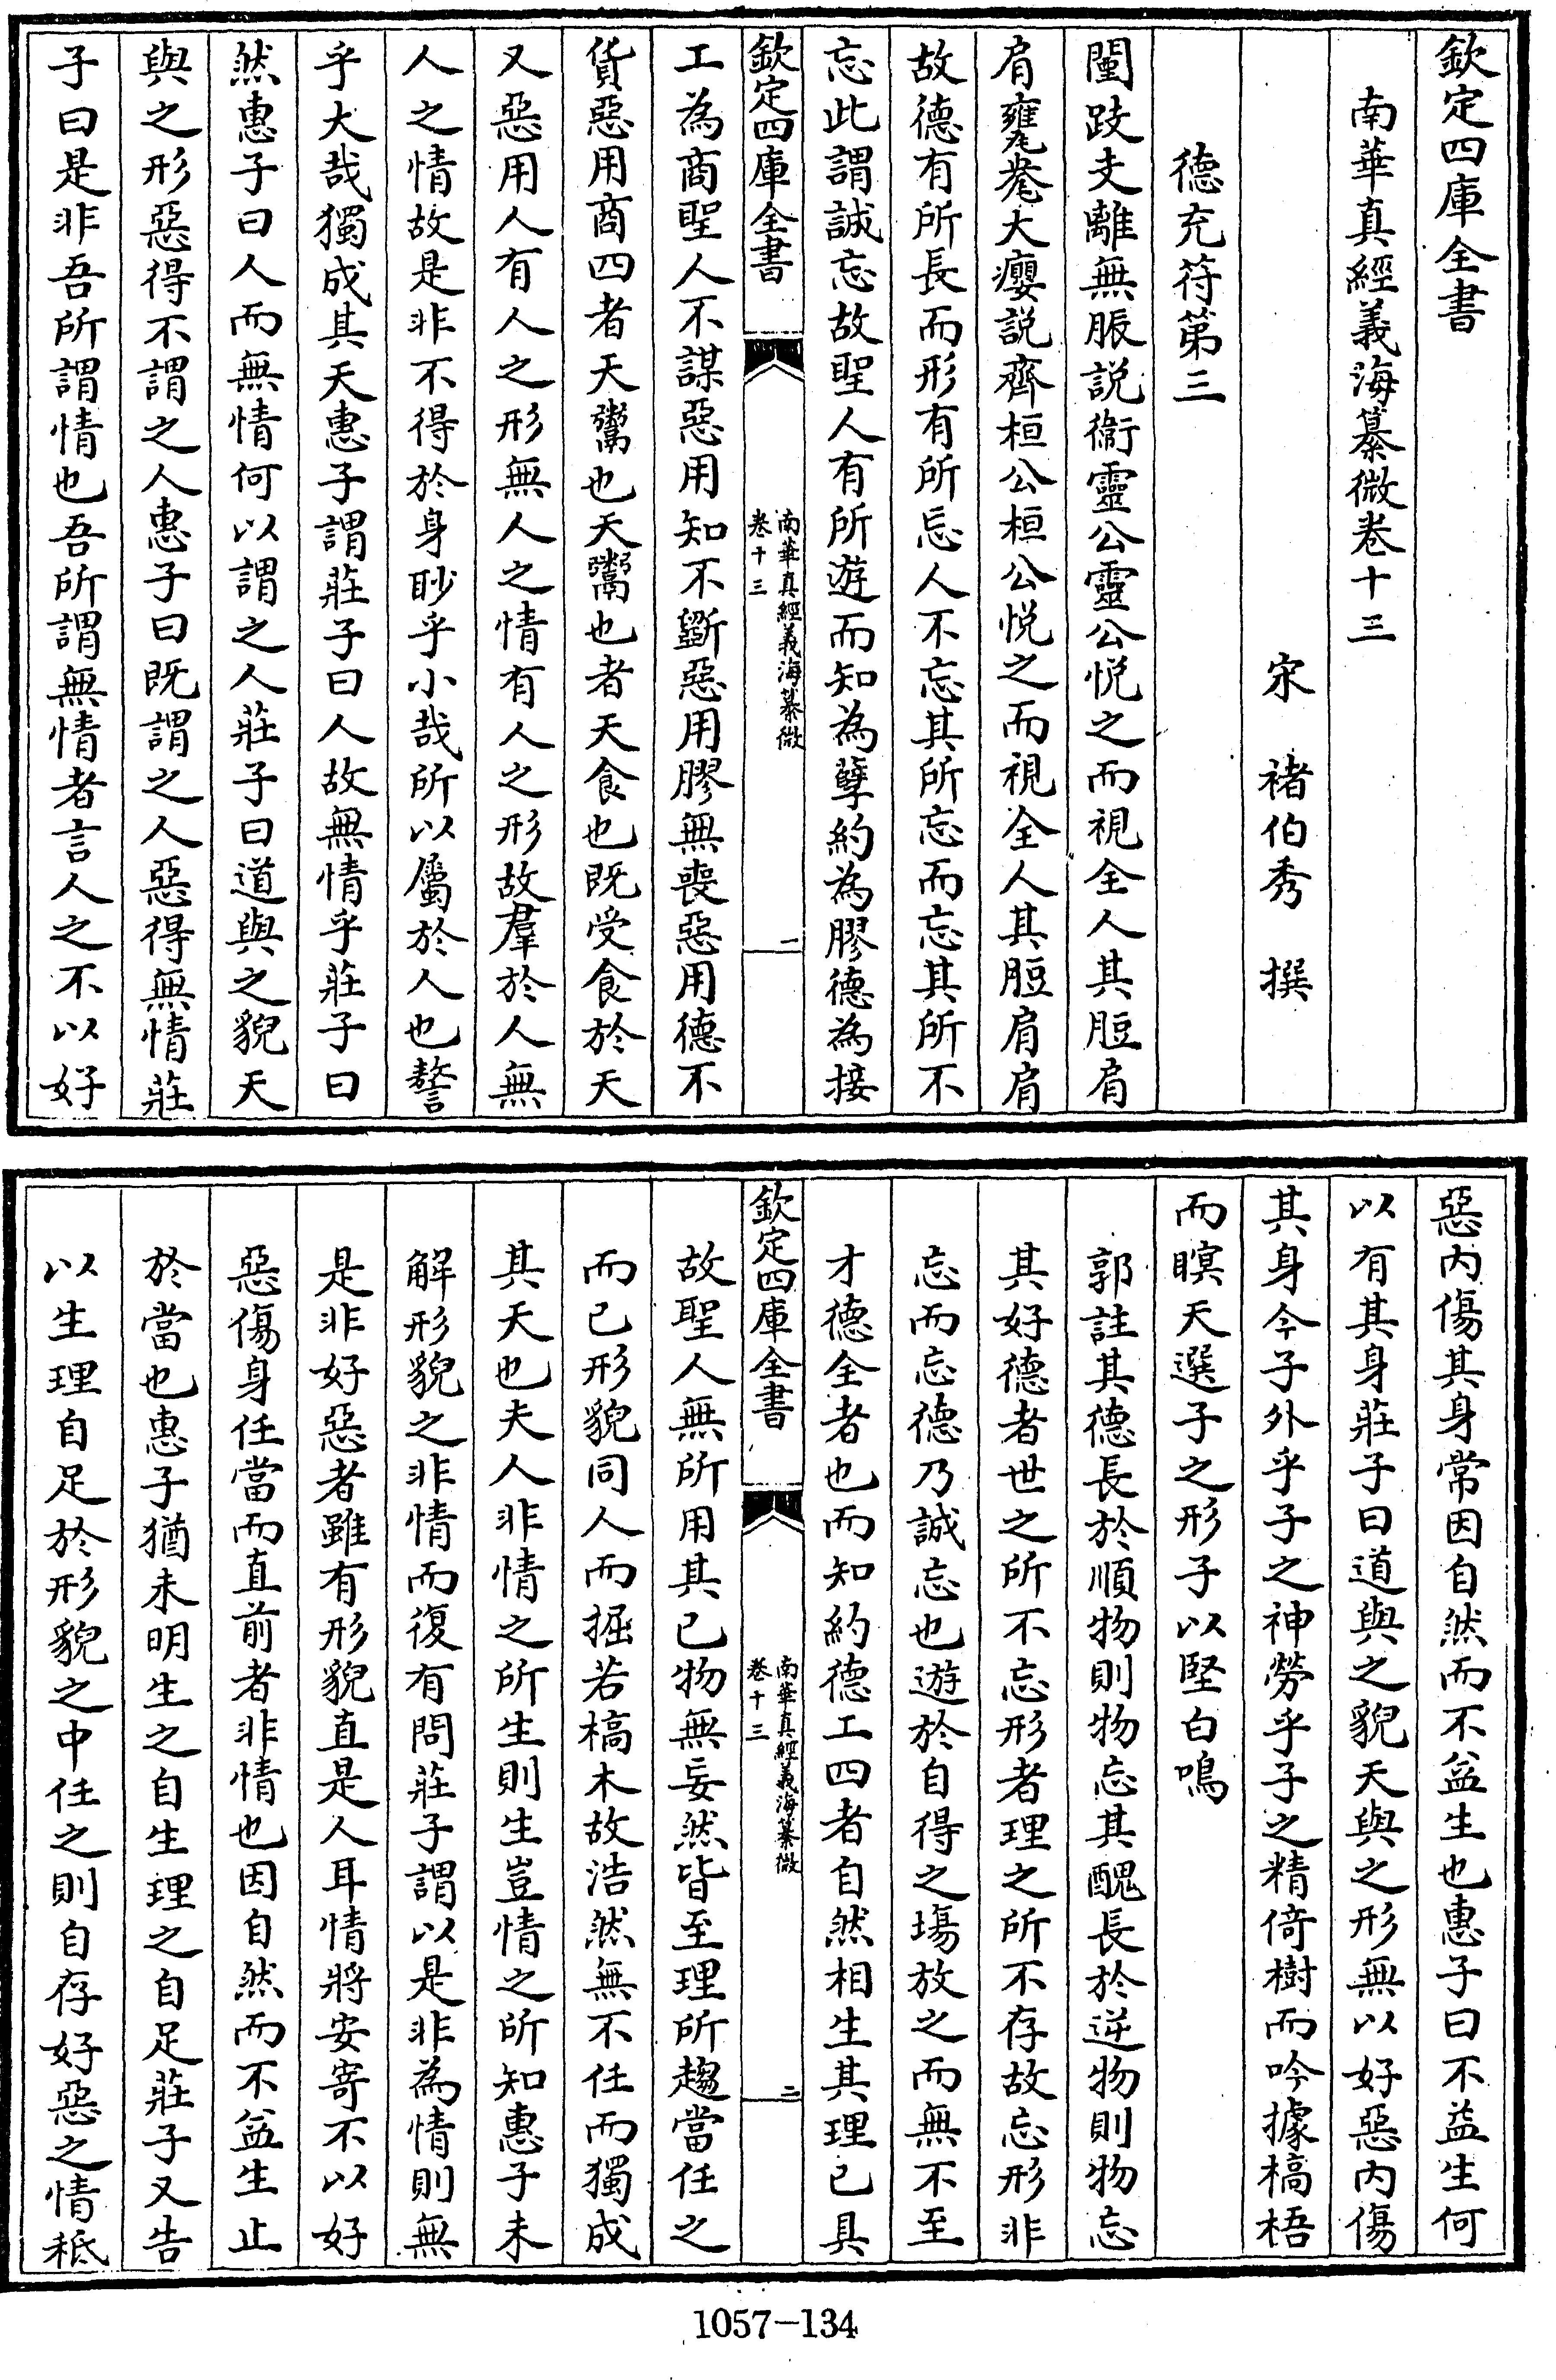 欽定四庫全書
南華真經義海纂微卷十三
宋　褚伯秀　撰
德充符第三
闉跂支離無脤説衞靈公靈公悦之而視全人其脰肩
肩甕㼜大癭説齊桓公桓公悦之而視全人其脰肩肩
故德有所長而形有所忘人不忘其所忘而忘其所不
忘此謂誠忘故聖人有所遊而知為孽約為膠德為接
欽定四庫全書
南華真經義海纂微
卷十三
一
工為商聖人不謀惡用知不斵惡用膠無喪惡用德不
貨惡用商四者天鬻也天鬻也者天食也既受食於天
又惡用人有人之形無人之情有人之形故羣於人無
人之情故是非不得於身眇乎小哉所以屬於人也謷
乎大哉獨成其天惠子謂莊子曰人故無情乎莊子曰
然惠子曰人而無情何以謂之人莊子曰道與之貌天
與之形惡得不謂之人惠子曰既謂之人惡得無情莊
子曰是非吾所謂情也吾所謂無情者言人之不以好
惡内傷其身常因自然而不益生也惠子曰不益生何
以有其身莊子曰道與之貌天與之形無以好惡内傷
其身今子外乎子之神勞乎子之精倚樹而吟據槁梧
而瞑天選子之形子以堅白鳴
郭註其德長於順物則物忘其醜長於逆物則物忘
其好德者世之所不忘形者理之所不存故忘形非
忘而忘德乃誠忘也遊於自得之塲放之而無不至
才德全者也而知約德工四者自然相生其理已具
欽定四庫全書
南華真經義海纂微
卷十三
二
故聖人無所用其已物無妄然皆至理所趨當任之
而已形貌同人而掘若槁木故浩然無不任而獨成
其天也夫人非情之所生則生豈情之所知惠子未
解形貌之非情而復有問莊子謂以是非為情則無
是非好惡者雖有形貌直是人耳情將安寄不以好
惡傷身任當而直前者非情也因自然而不益生止
於當也惠子猶未明生之自生理之自足莊子又告
以生理自足於形貌之中任之則自存好惡之情秪
1057-134